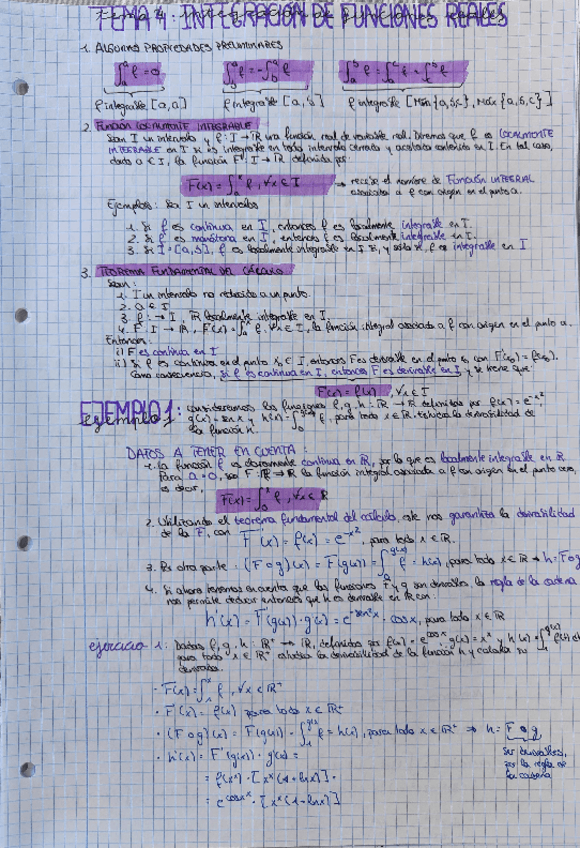 TEMA 4: INTEGRACIÓN DE FUNCIONES REALES
1. ALGUNAS PROPIEDADES PRELIMINARES
∫ₐᵃ f = 0   ∫ₐᵇ f = -∫ᵇₐ f   ∫ₐᵇ f = ∫ₐᶜ f + ∫ᶜᵇ f
f integrable [a,a]   f integrable [a,b]   f integrable [Mín{a,b,c}, Máx{a,b,c}]
2. FUNCIÓN LOCALMENTE INTEGRABLE
Sean I un intervalo y f: I → ℝ una función real de variable real. Diremos que f es LOCALMENTE
INTEGRABLE en I si es integrable en todo intervalo cerrado y acotado contenido en I. En tal caso,
dado a ∈ I, la función F: I → ℝ definida por:
F(x) = ∫ₐˣ f, ∀x ∈ I → recibe el nombre de FUNCIÓN INTEGRAL
asociada a f con origen en el punto a.
Ejemplos: Sea I un intervalo
1. Si f es continua en I, entonces f es localmente integrable en I.
2. Si f es monótona en I, entonces f es localmente integrable en I.
3. Si I = [a,b], f es localmente integrable en I si, y solo si, f es integrable en I
3. TEOREMA FUNDAMENTAL DEL CÁLCULO
Sean:
1. I un intervalo no reducido a un punto.
2. a ∈ I
3. f: → I, ℝ localmente integrable en I.
4. F: I → ℝ, F(x) = ∫ₐˣ f, ∀x ∈ I, la función integral asociada a f con origen en el punto a.
Entonces:
i) F es continua en I
ii) Si f es continua en el punto x₀ ∈ I, entonces F es derivable en el punto x₀ con F'(x₀) = f(x₀).
Como consecuencia, si f es continua en I, entonces F es derivable en I y se tiene que:
F'(x) = f(x), ∀x ∈ I
EJEMPLO 1: Consideramos las funciones f, g, h: ℝ → ℝ definidas por f(x) = e^-x²
g(x) = sen x y h(x) = ∫₀^g(x) f, para todo x ∈ ℝ. Estudia la derivabilidad de
la función h.
DATOS A TENER EN CUENTA:
1. La función f es claramente continua en ℝ, por lo que es localmente integrable en ℝ
Para a = 0, sea F: ℝ → ℝ la función integral asociada a f con origen en el punto cero,
es decir,
F(x) = ∫₀ˣ f, ∀x ∈ ℝ
2. Utilizando el teorema fundamental del cálculo, este nos garantiza la derivabilidad
de la F, con F'(x) = f(x) = e^-x², para todo x ∈ ℝ.
3. Por otra parte: (F∘g)(x) = F(g(x)) = ∫₀^g(x) f = h(x), para todo x ∈ ℝ ⇒ h = F∘g
4. Si ahora tenemos en cuenta que las funciones F y g son derivables, la regla de la cadena
nos permite deducir entonces que h es derivable en ℝ con:
h'(x) = F'(g(x))·g'(x) = e^-sen²x · cos x, para todo x ∈ ℝ
ejercicio 1: Dadas f, g, h: ℝ⁺ → ℝ, definidas por f(x) = e^cos x, g(x) = xˣ y h(x) = ∫₁^g(x) f(t) dt
para todo x ∈ ℝ⁺ estudia la derivabilidad de la función h y calcula su
derivada.
· F(x) = ∫₁ˣ f, ∀x ∈ ℝ⁺
· F'(x) = f(x) para todo x ∈ ℝ⁺
· (F∘g)(x) = F(g(x)) = ∫₁^g(x) f = h(x), para todo x ∈ ℝ⁺ ⇒ h = F∘g
· h'(x) = F'(g(x))·g'(x) =
= f(xˣ)·[xˣ(1+ln x)] =
= e^cos xˣ·[xˣ(1+ln x)]
Ser derivables,
por la regla de
la cadena